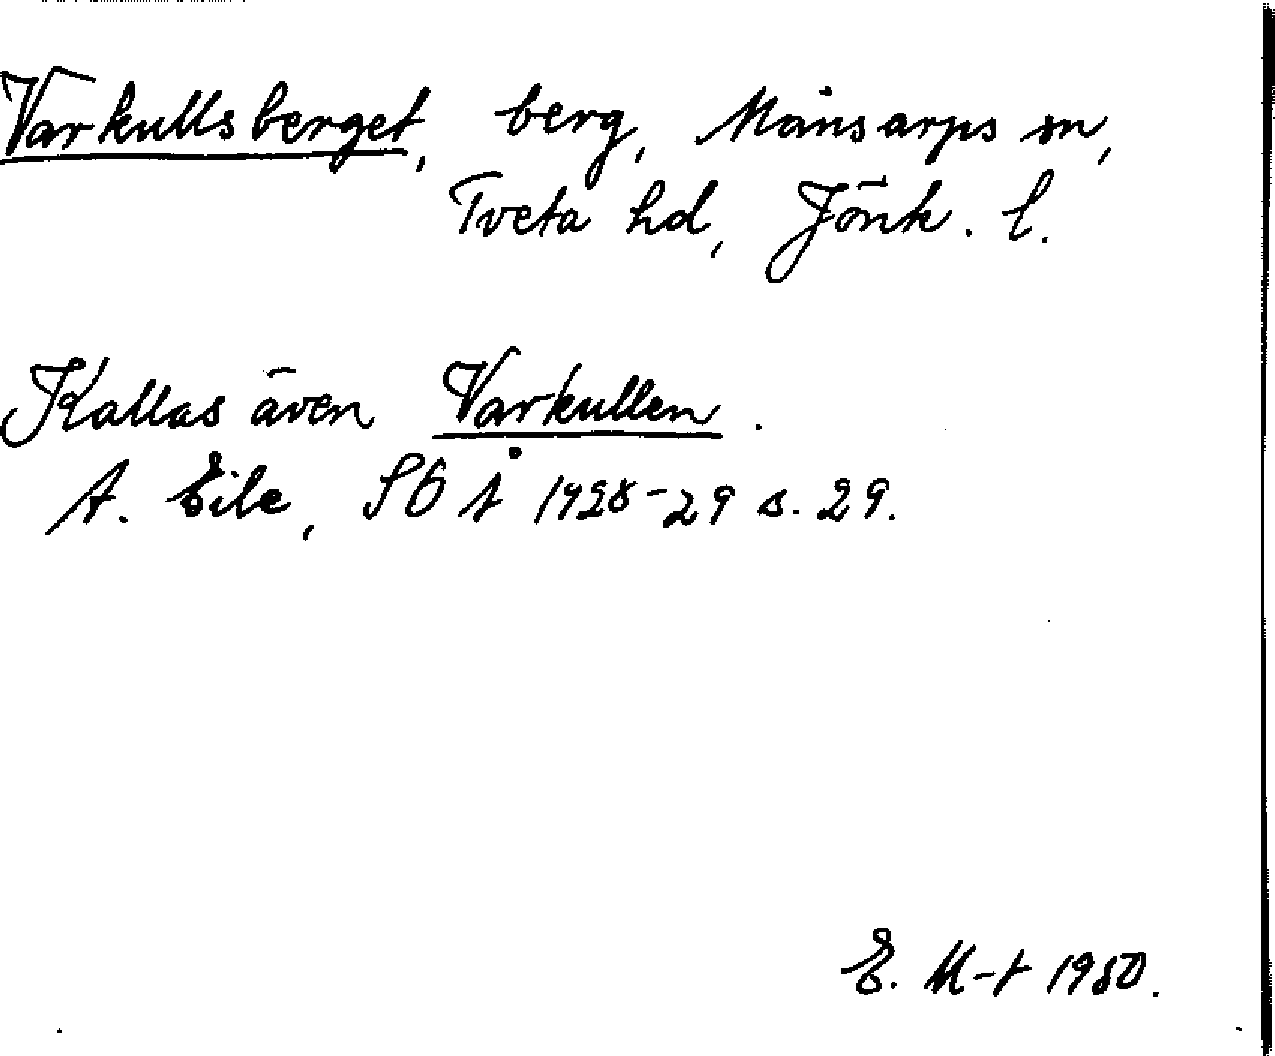 Varkullsberget, berg, Månsarps sn,
Tveta hd, Jönk. l.
Kallas även Varkullen.
A. Eile, SÖÅ 1928-29 s. 29.
E. M-t 1950.